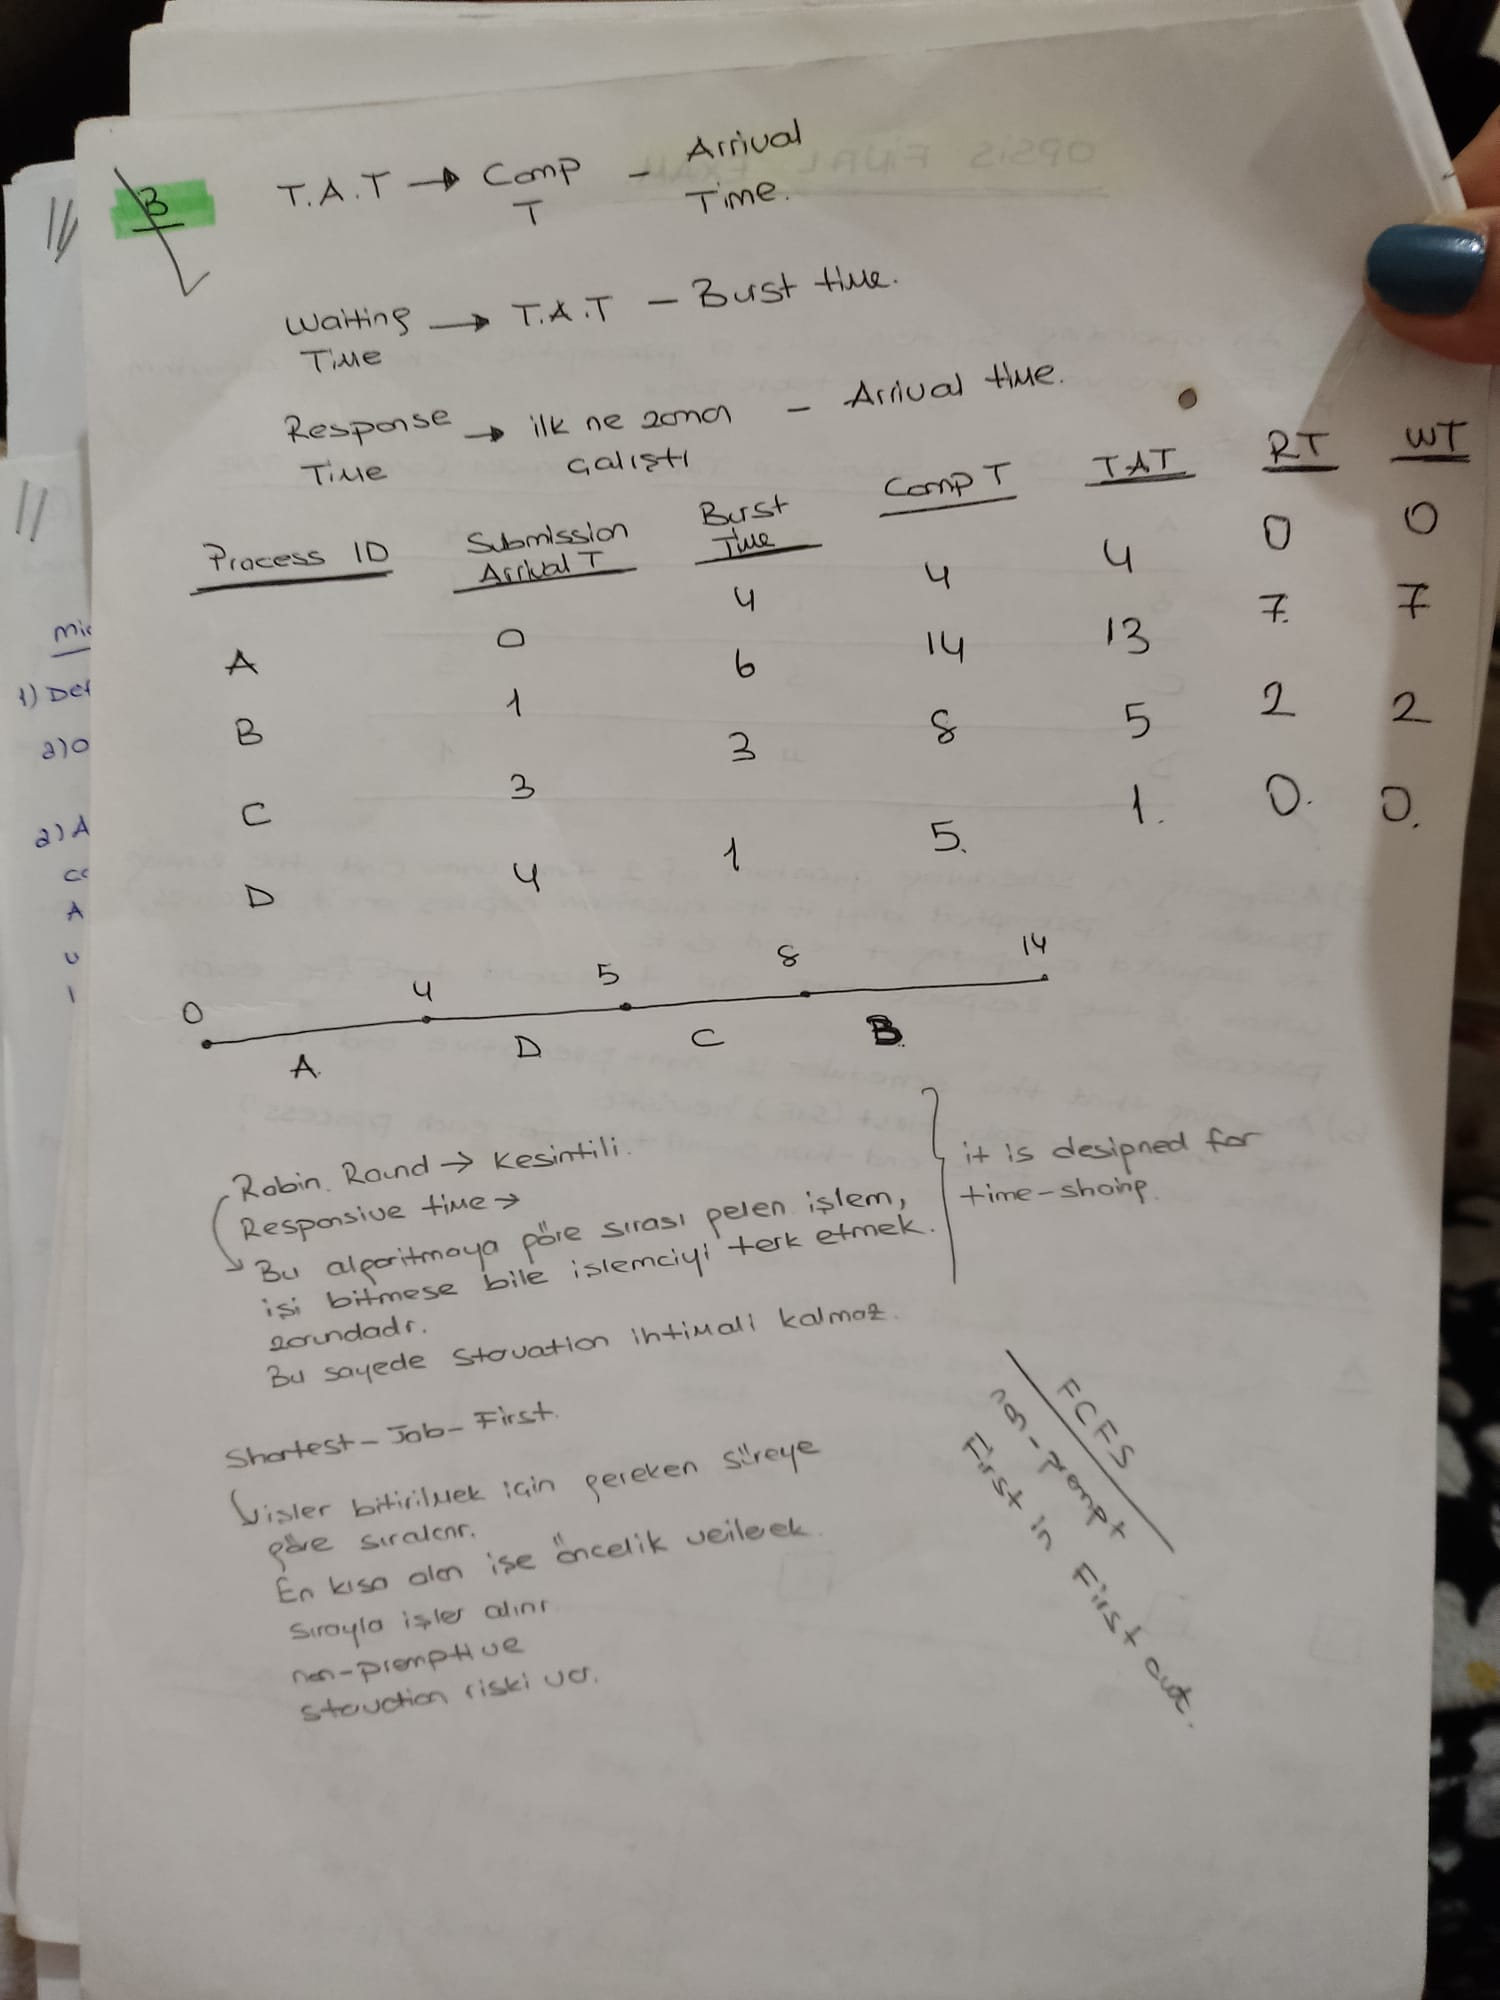 3
T.A.T → Comp T - Arrival Time.
Waiting Time → T.A.T - Burst time.
Response Time → ilk ne zaman çalıştı - Arrival time.
Process ID Submission Arrival T Burst Time Comp T TAT RT WT
A 0 4 4 4 0 0
B 1 6 14 13 7. 7
C 3 3 8 5 2 2
D 4 1 5. 1. 0. 0.
0 4 5 8 14
A. D C B.
Robin Round → Kesintili.
Responsive time →
Bu algoritmaya göre sırası gelen işlem,
işi bitmese bile islemciyi terk etmek.
zorundadr.
Bu sayede starvation ihtimali kalmaz.
it is designed for
time-sharing.
Shortest-Job-First.
işler bitirilmek için gereken süreye
göre sıralanr.
En kısa olan işe öncelik verilerek.
Sırayla işler alınr
non-premptive
starvation riski var.
FCFS
First in First out.
mi
1) Def
2) A
cc
A